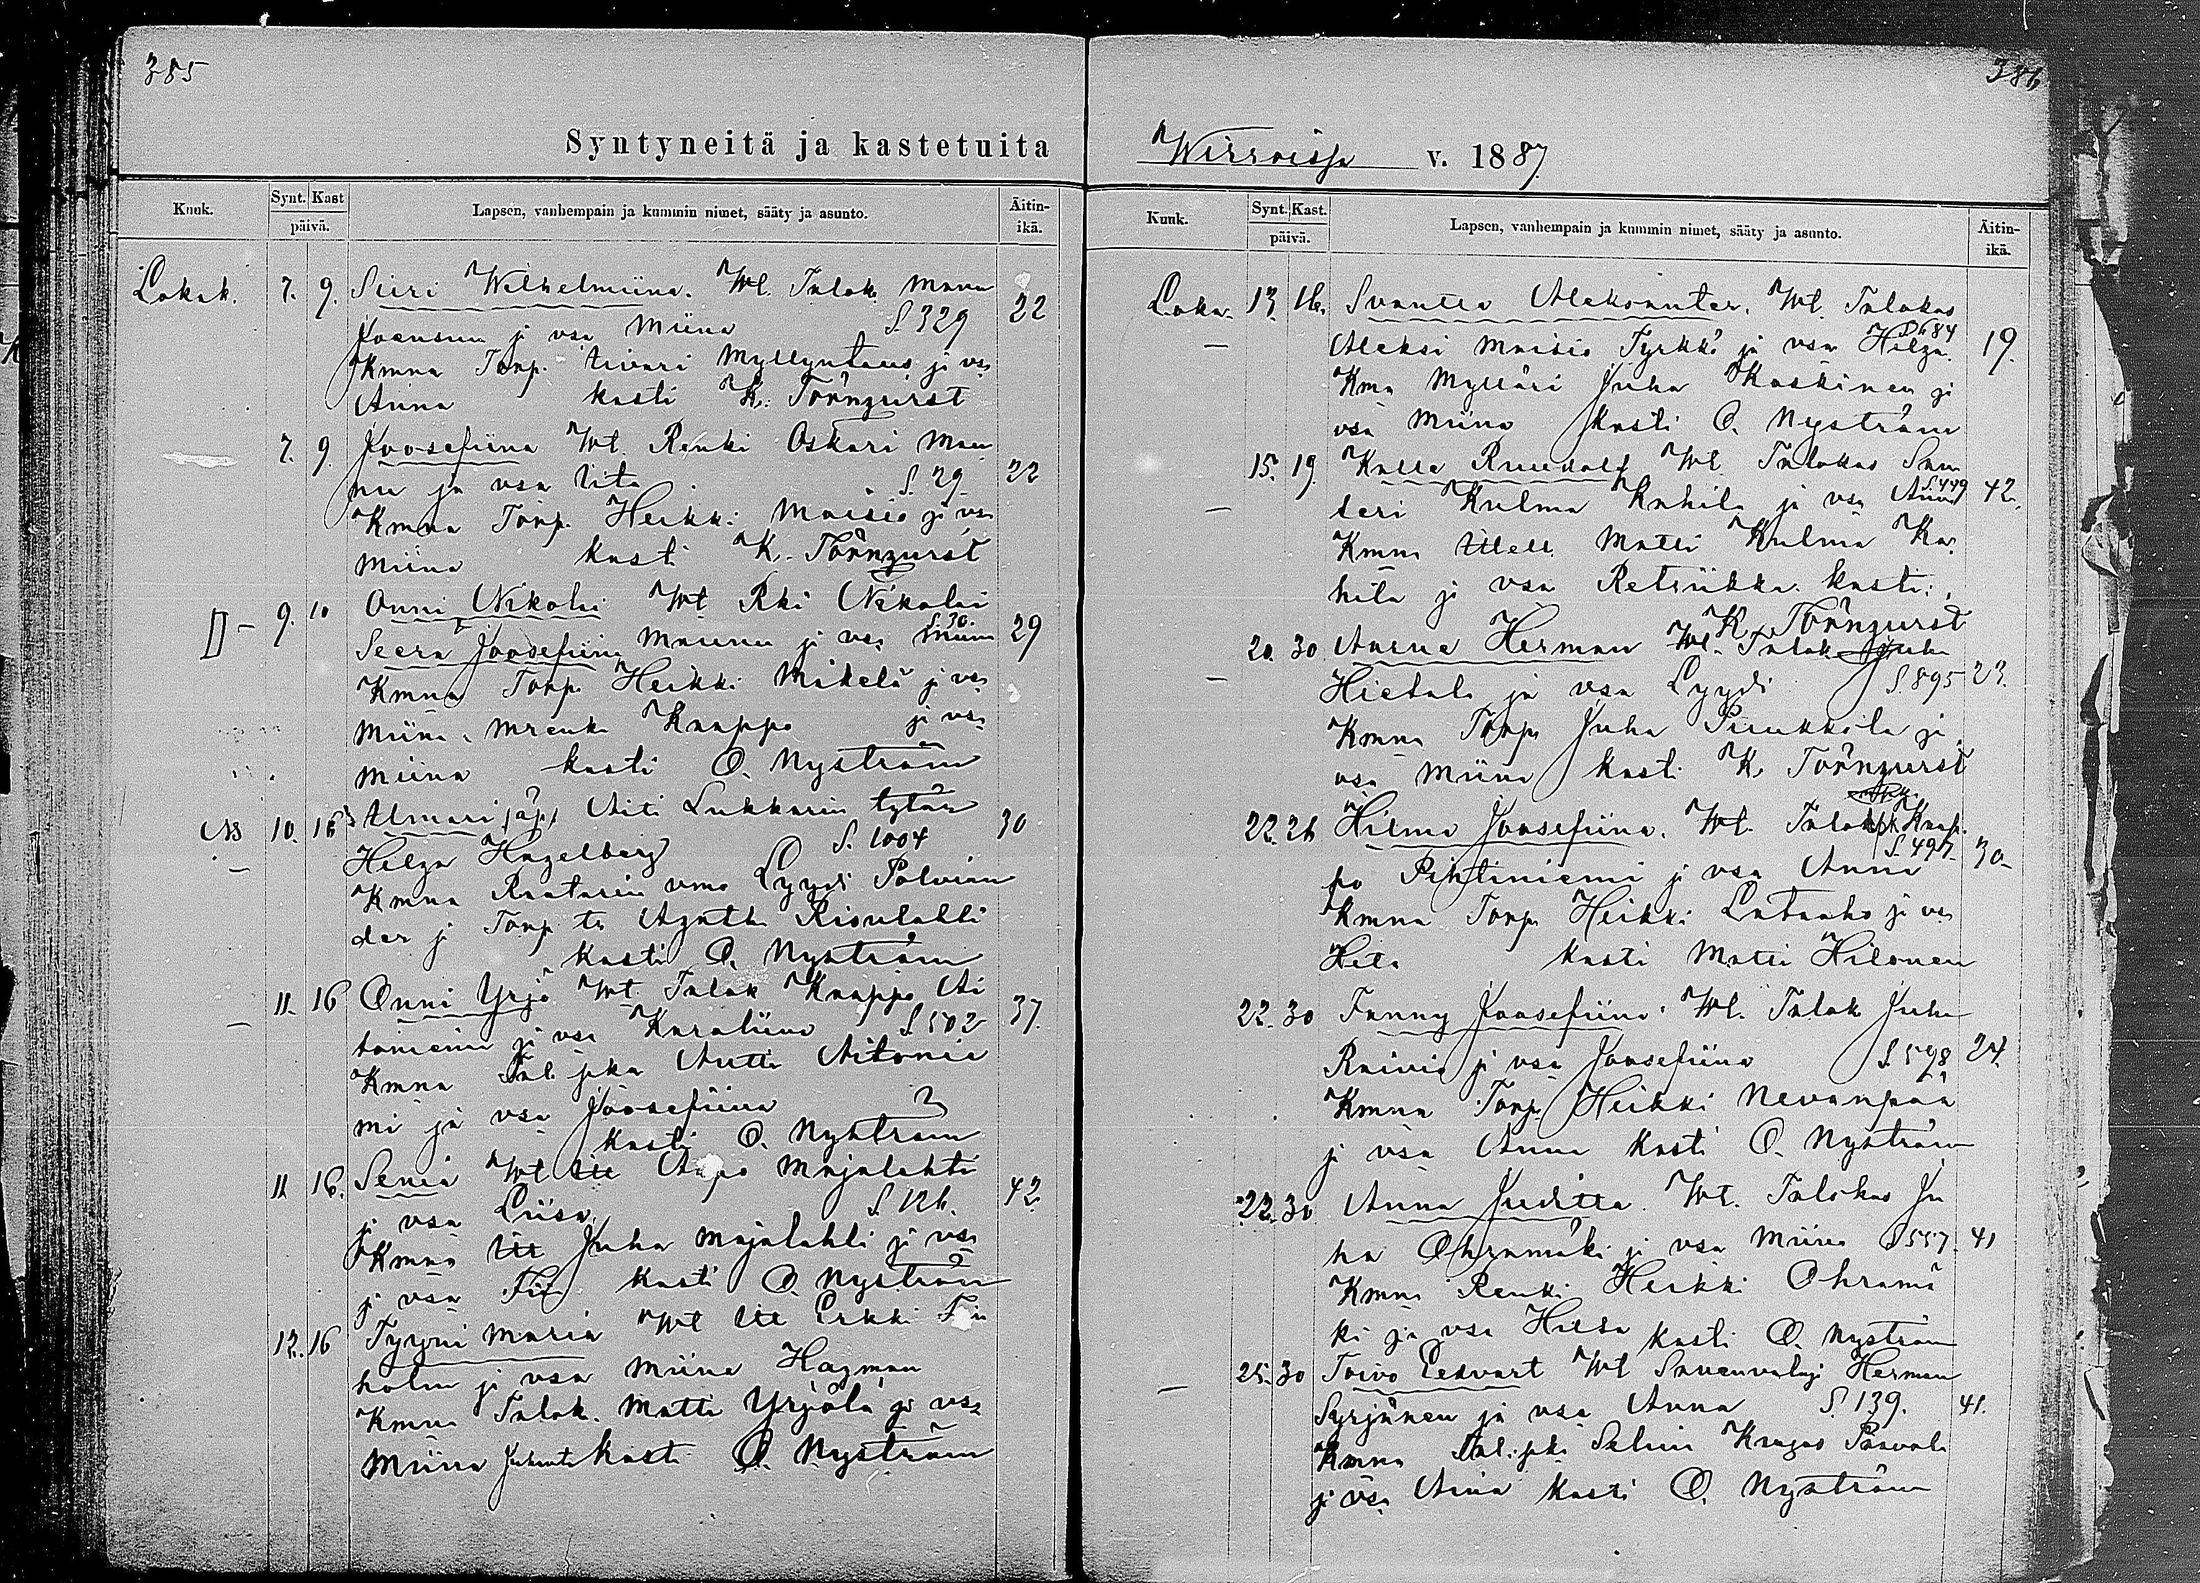 385
Syntyneitä ja kastetuita
Kuuk. Synt. Kast päivä. Lapsen, vanhempain ja kummin nimet, sääty ja asunto. Äitin-ikä.
Lokak. 7. 9. Siiri Wilhelmiina. Wt. Talok. Manu
ja vsa Miina S 329 22
Kmna Torp. Iivari Myllyntaus ja vsa
Anna kasti K. Törnqurst
7. 9. Joosefiina Wt. Renki Oskari Mau
nu ja vsa Iita S. 29 22
Kmna Torp. Heikki Maisio ja vsa
Miina kasti K. Törnqurst
9. 10 Onni Nikolai Wt Rki Nikolai
Joosefiina Maunu ja vsa Miina S. 30. 29
Kmna Torp. Heikki Mikelä ja vsa
Miina, Kaappo ja vsa
Miina kasti O. Nyström
10. 16 Ilmari (äp) Äiti Lukkarin tytär
Hilja Hagelberg S. 1004 30
Kmna Raatarin vmo Lyydi Polvian
der ja Torp. tr Agatha Risulahti
kasti O. Nyström
11. 16 Onni Yrjö Wt. Talok Kaappo Ai
toniemi ja vsa Karoliina S 502 37.
Kmna Tal. poka Antti Aitonie
mi ja vsa Joosefiina
kasti O. Nyström
11 16. Senia Wt Itt Aapo Majalahti
ja vsa Liisa S. 126. 42
Kmna Itt Juha Majalahti ja vsa
ja vsa Fii kasti O. Nyström
12. 16 Tyyni Maria Wt Itt Erkki
holm ja vsa Miina Hagman
Kmna Talok. Matti Yrjölä ja vsa
Miina kasti O. Nyström
386
Wirroissa v. 1887.
Kuuk. Synt. Kast. päivä. Lapsen, vanhempain ja kummin nimet, sääty ja asunto. Äitin-ikä.
Loka. 13. 16. Svantta Aleksanter. Wt. Talokas
Aleksi Maisio Tyrkkö ja vsa Hilja. S 684 19.
Kma Mylläri Juha Koskinen ja
vsa Miina kasti O. Nyström
15. 19. Kalle Ruudolf Wt. Talokas San
teri Kulma Kahila ja vsa Anna S 449 42.
Kmna Matti Kulma Ka
hila ja vsa Retriikka kasti
K. Törnqurst
20. 30 Aarne Herman Wt. Talok Juha
Hietala ja vsa Lyydi S. 895 23.
Kmna Torp. Juha Puukkola ja
vsa Miina kasti K. Törnqurst
22. 26 Hilma Joosefiina. Wt. Talok Kaap
po Pihtiniemi ja vsa Anna S. 497. 30
Kmna Torp. Heikki Lataaho ja vsa
Heta kasti Matti Hilonen
22. 30 Fanny Joosefiina. Wt. Talok Juha
Raivio ja vsa Joosefiina S. 598 24.
Kmna Torp. Heikki Nevanpää
ja vsa Anna kasti O. Nyström
22. 30 Anna Juditta. Wt. Talokas Ju
ha Ohramäki ja vsa Miina S 557. 41
Kmna Renki Heikki Ohramä
ki ja vsa Hilda kasti O. Nyström
25. 30 Toivo Eedvart Wt Savenvalaj Herman
Syrjänen ja vsa Anna S. 139. 41.
Kmna Tal. poka Salim Krugas Paavola
ja vsa Aina kasti O. Nyström